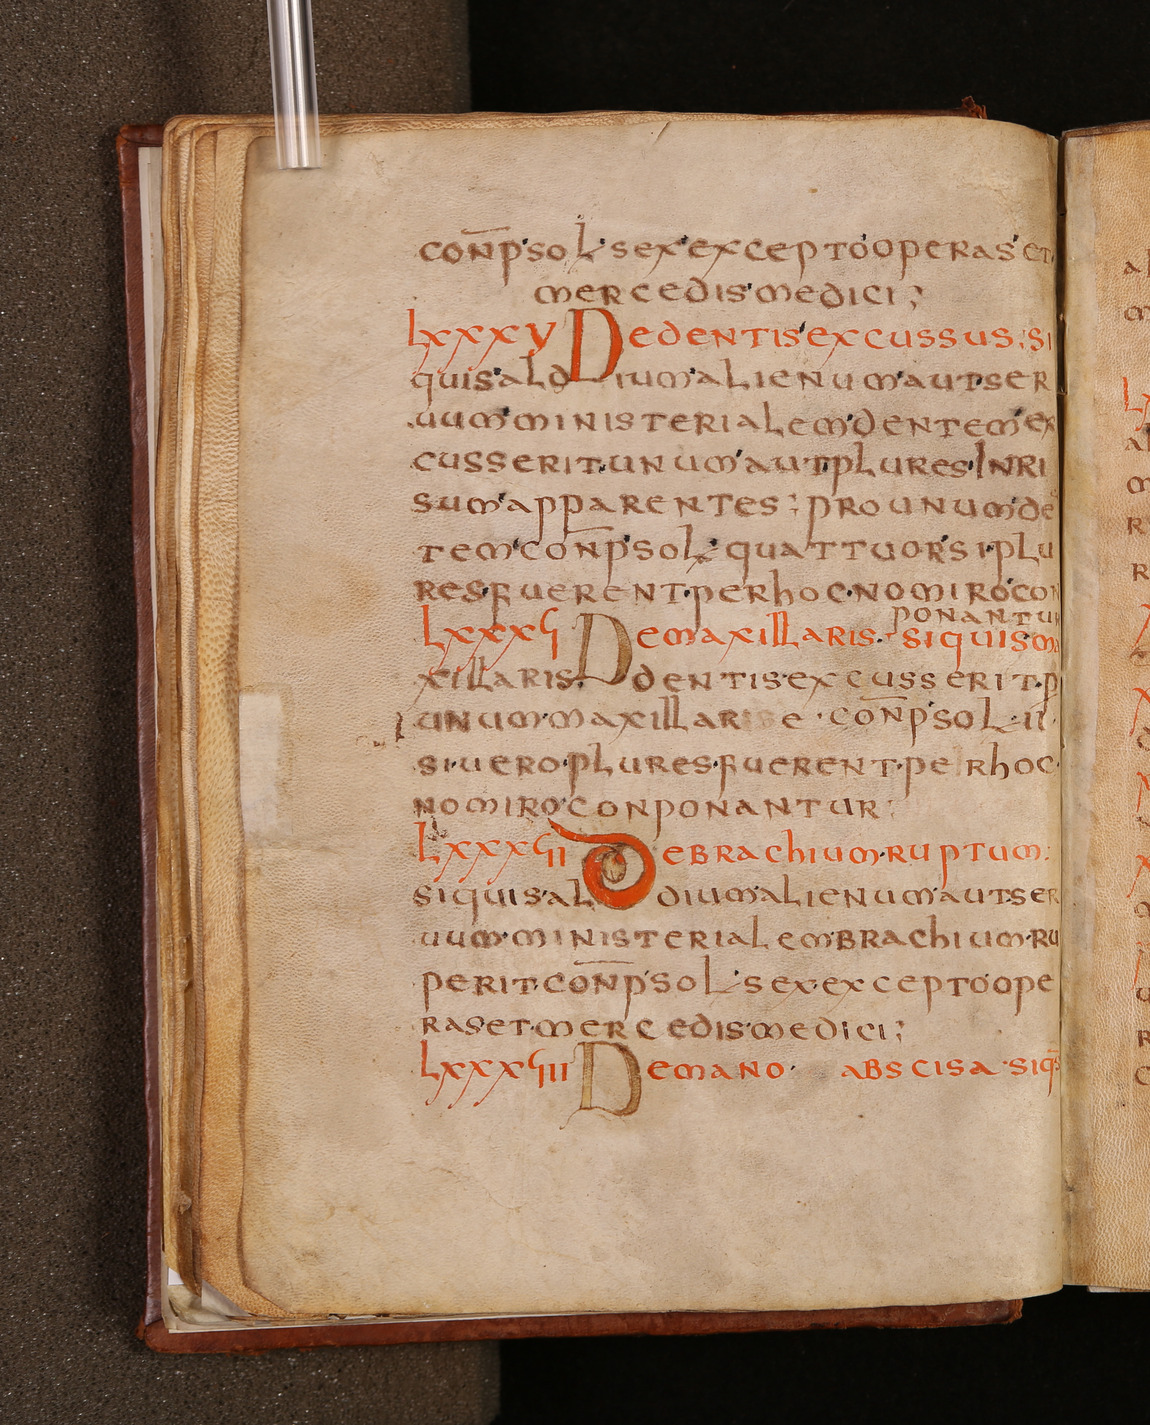 con̄p sol sex excepto operas et
mercedis medici;
LXXXV De dentis excussus; si
quis aldium alienum aut ser
uum ministerialem dentem ex
cusserit unum aut plures Inri
sum apparentes; pro unum de
tem con̄p sol quattuor si plu
res fuerent per hoc nomiro con
ponantur
LXXXVI De maxillaris. si quis ma
xillaris dentis excusserit p
unum maxillare con̄p sol II
si uero plures fuerent per hoc
nomiro conponantur;
LXXXVII De brachium ruptum:
si quis aldium alienum aut ser
uum ministerialem brachium ru
perit con̄p sol sex excepto ope
ras et mercedis medici;
LXXXVIII De mano abscisa siqs